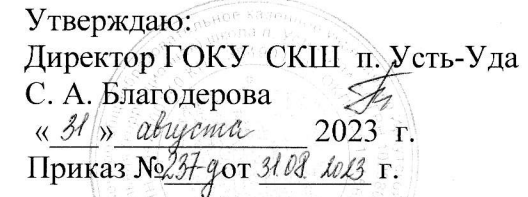 Утверждаю:
Директор ГОКУ СКШ п. Усть-Уда
С. А. Благодерова
« 31 » августа 2023 г.
Приказ № 237-д от 31.08.2023 г.